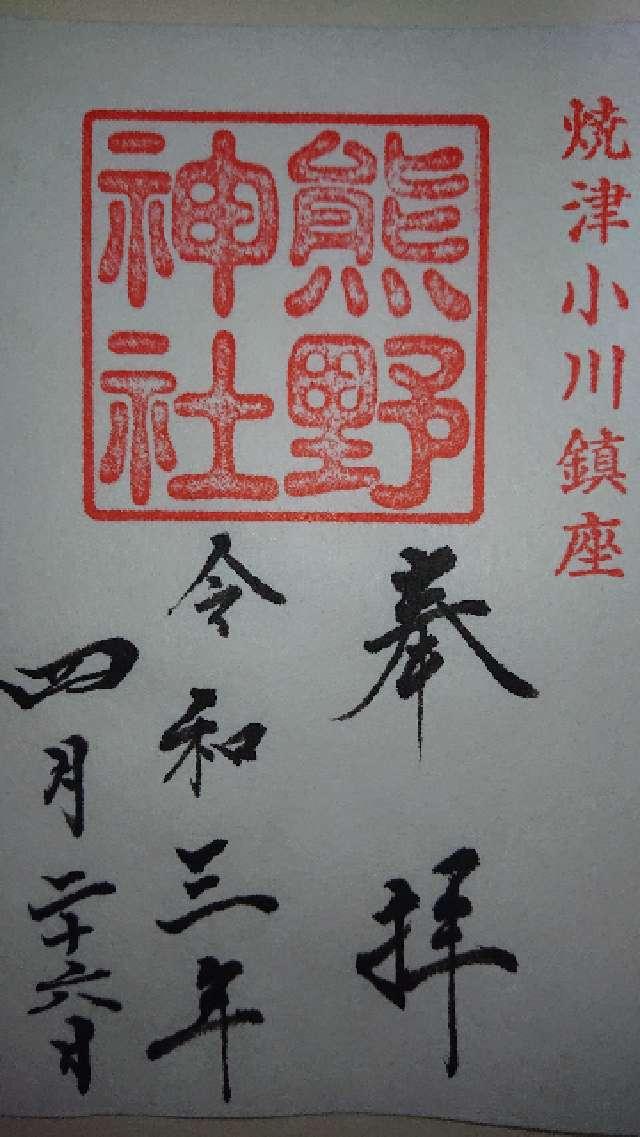 焼津小川鎮座
熊野
神社
奉拝
令和三年
四月二十六日